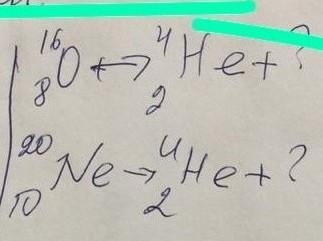 ¹⁶₈O ↔ ⁴₂He + ?
²⁰₁₀Ne → ⁴₂He + ?